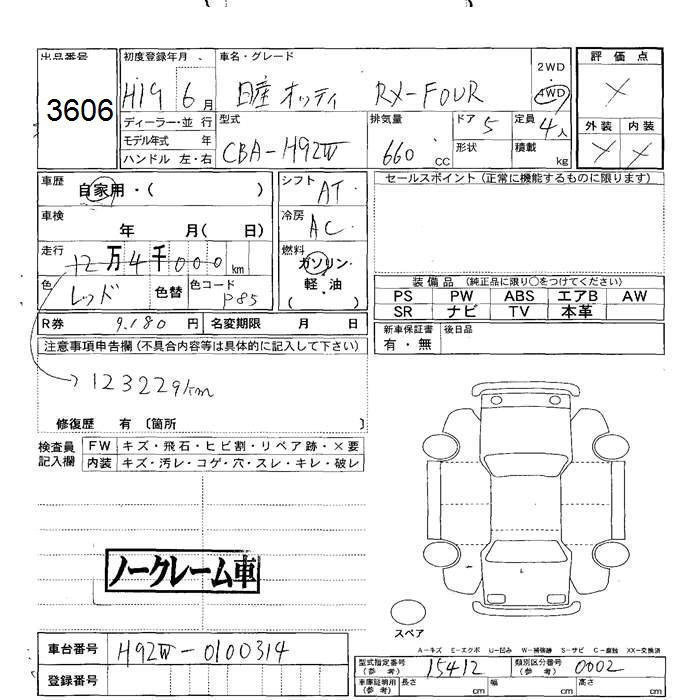 出品番号 初度登録年月 車名・グレード
3606 H19 6月 日産 オッティ RX-FOUR 2WD 4WD 評価点
ディーラー・並行 型式 排気量 ドア 5 定員 4人 外装 内装
モデル年式 年 CBA-H92W 660cc 形状 積載 kg
ハンドル 左・右
車歴 自家用・( ) シフト AT セールスポイント(正常に機能するものに限ります)
車検 年 月( 日) 冷房 AC
走行 12万4千000km 燃料 ガソリン・軽・油( )
色 レッド 色替 色コード P85
装備品 (純正品に限り○をつけてください)
PS PW ABS エアB AW
SR ナビ TV 本革
R券 9.180円 名変期限 月 日 新車保証書 有・無 後日品
注意事項申告欄(不具合内容等は具体的に記入して下さい)
123229km
修復歴 有 〔箇所 〕
検査員記入欄 FW キズ・飛石・ヒビ割・リペア跡・×要
内装 キズ・汚レ・コゲ・穴・スレ・キレ・破レ
ノークレーム車
スペア
A-キズ E-エクボ U-凹み W-補修跡 S-サビ C-腐蝕 XX-交換済
車台番号 H92W-0100314
登録番号
型式指定番号(参考) 15412 類別区分番号(参考) 0002
車庫証明用(参考) 長さ cm 幅 cm 高さ cm